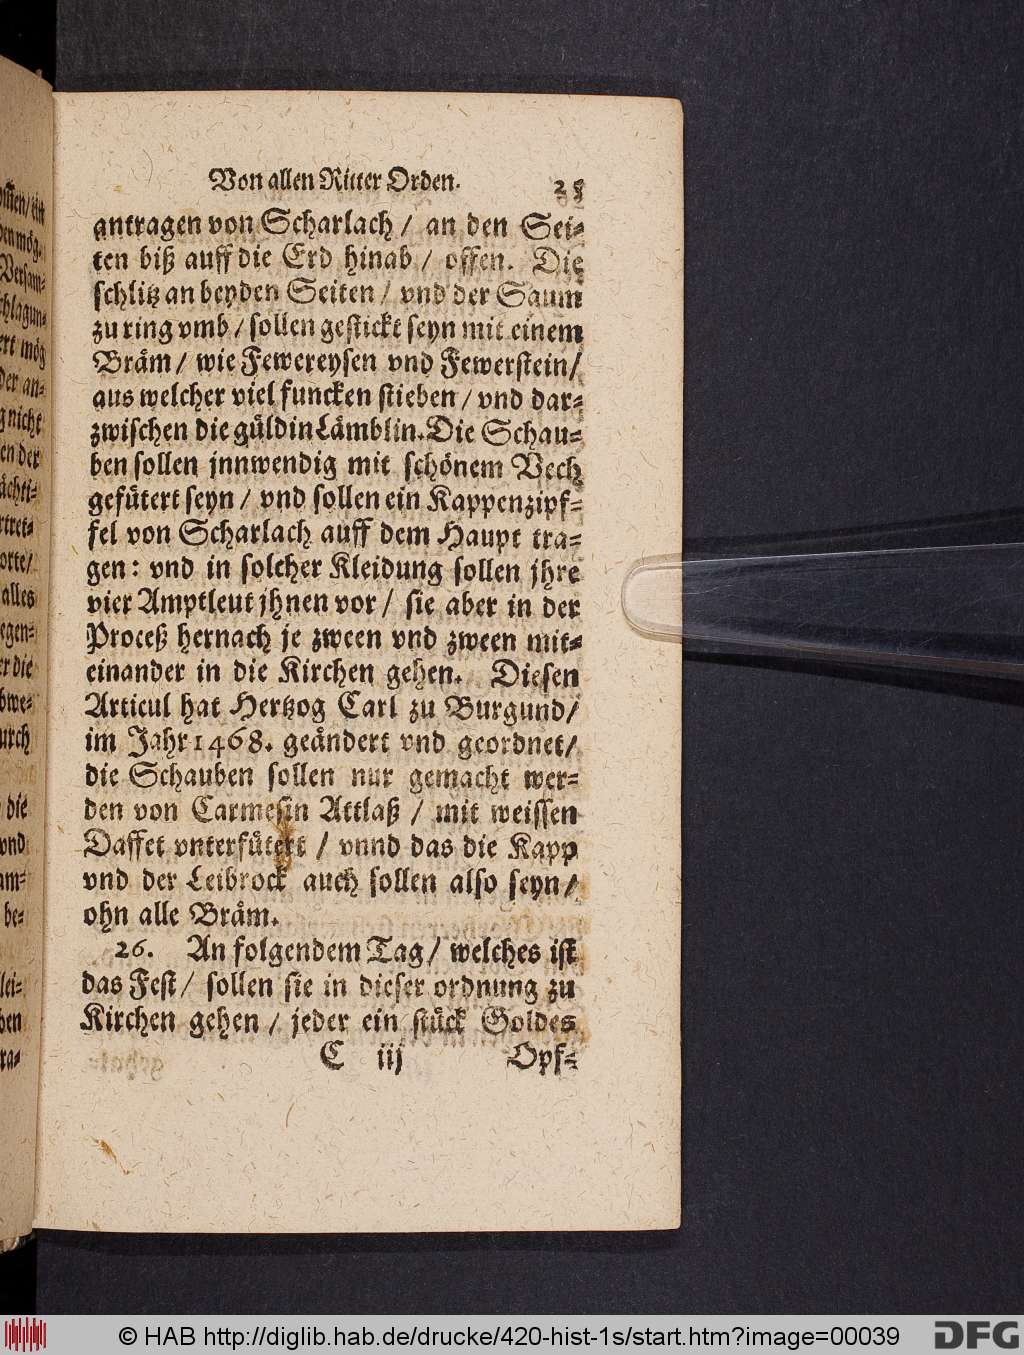 Von allen Ritter Orden. 25
antragen von Scharlach / an den Sei-
ten biß auff die Erd hinab / offen. Die
schlitz an beyden Seiten / vnd der Saum
zu ring vmb / sollen gestickt seyn mit einem
Bräm / wie Fewereysen vnd Fewerstein /
aus welcher viel funcken stieben / vnd dar-
zwischen die güldin Lämblin. Die Schau-
ben sollen jnnwendig mit schönem Vech
gefütert seyn / vnd sollen ein Kappenzipf-
fel von Scharlach auff dem Haupt tra-
gen: vnd in solcher Kleidung sollen jhre
vier Amptleut jhnen vor / sie aber in der
Proceß hernach je zween vnd zween mit-
einander in die Kirchen gehen. Diesen
Articul hat Hertzog Carl zu Burgund /
im Jahr 1468. geändert vnd geordnet /
die Schauben sollen nur gemacht wer-
den von Carmesin Attlaß / mit weissen
Daffet vnterfütert / vnnd das die Kapp
vnd der Leibrock auch sollen also seyn /
ohn alle Bräm.
26. An folgendem Tag / welches ist
das Fest / sollen sie in dieser ordnung zu
Kirchen gehen / jeder ein stück Goldes
C iij Opf-
© HAB http://diglib.hab.de/drucke/420-hist-1s/start.htm?image=00039
DFG